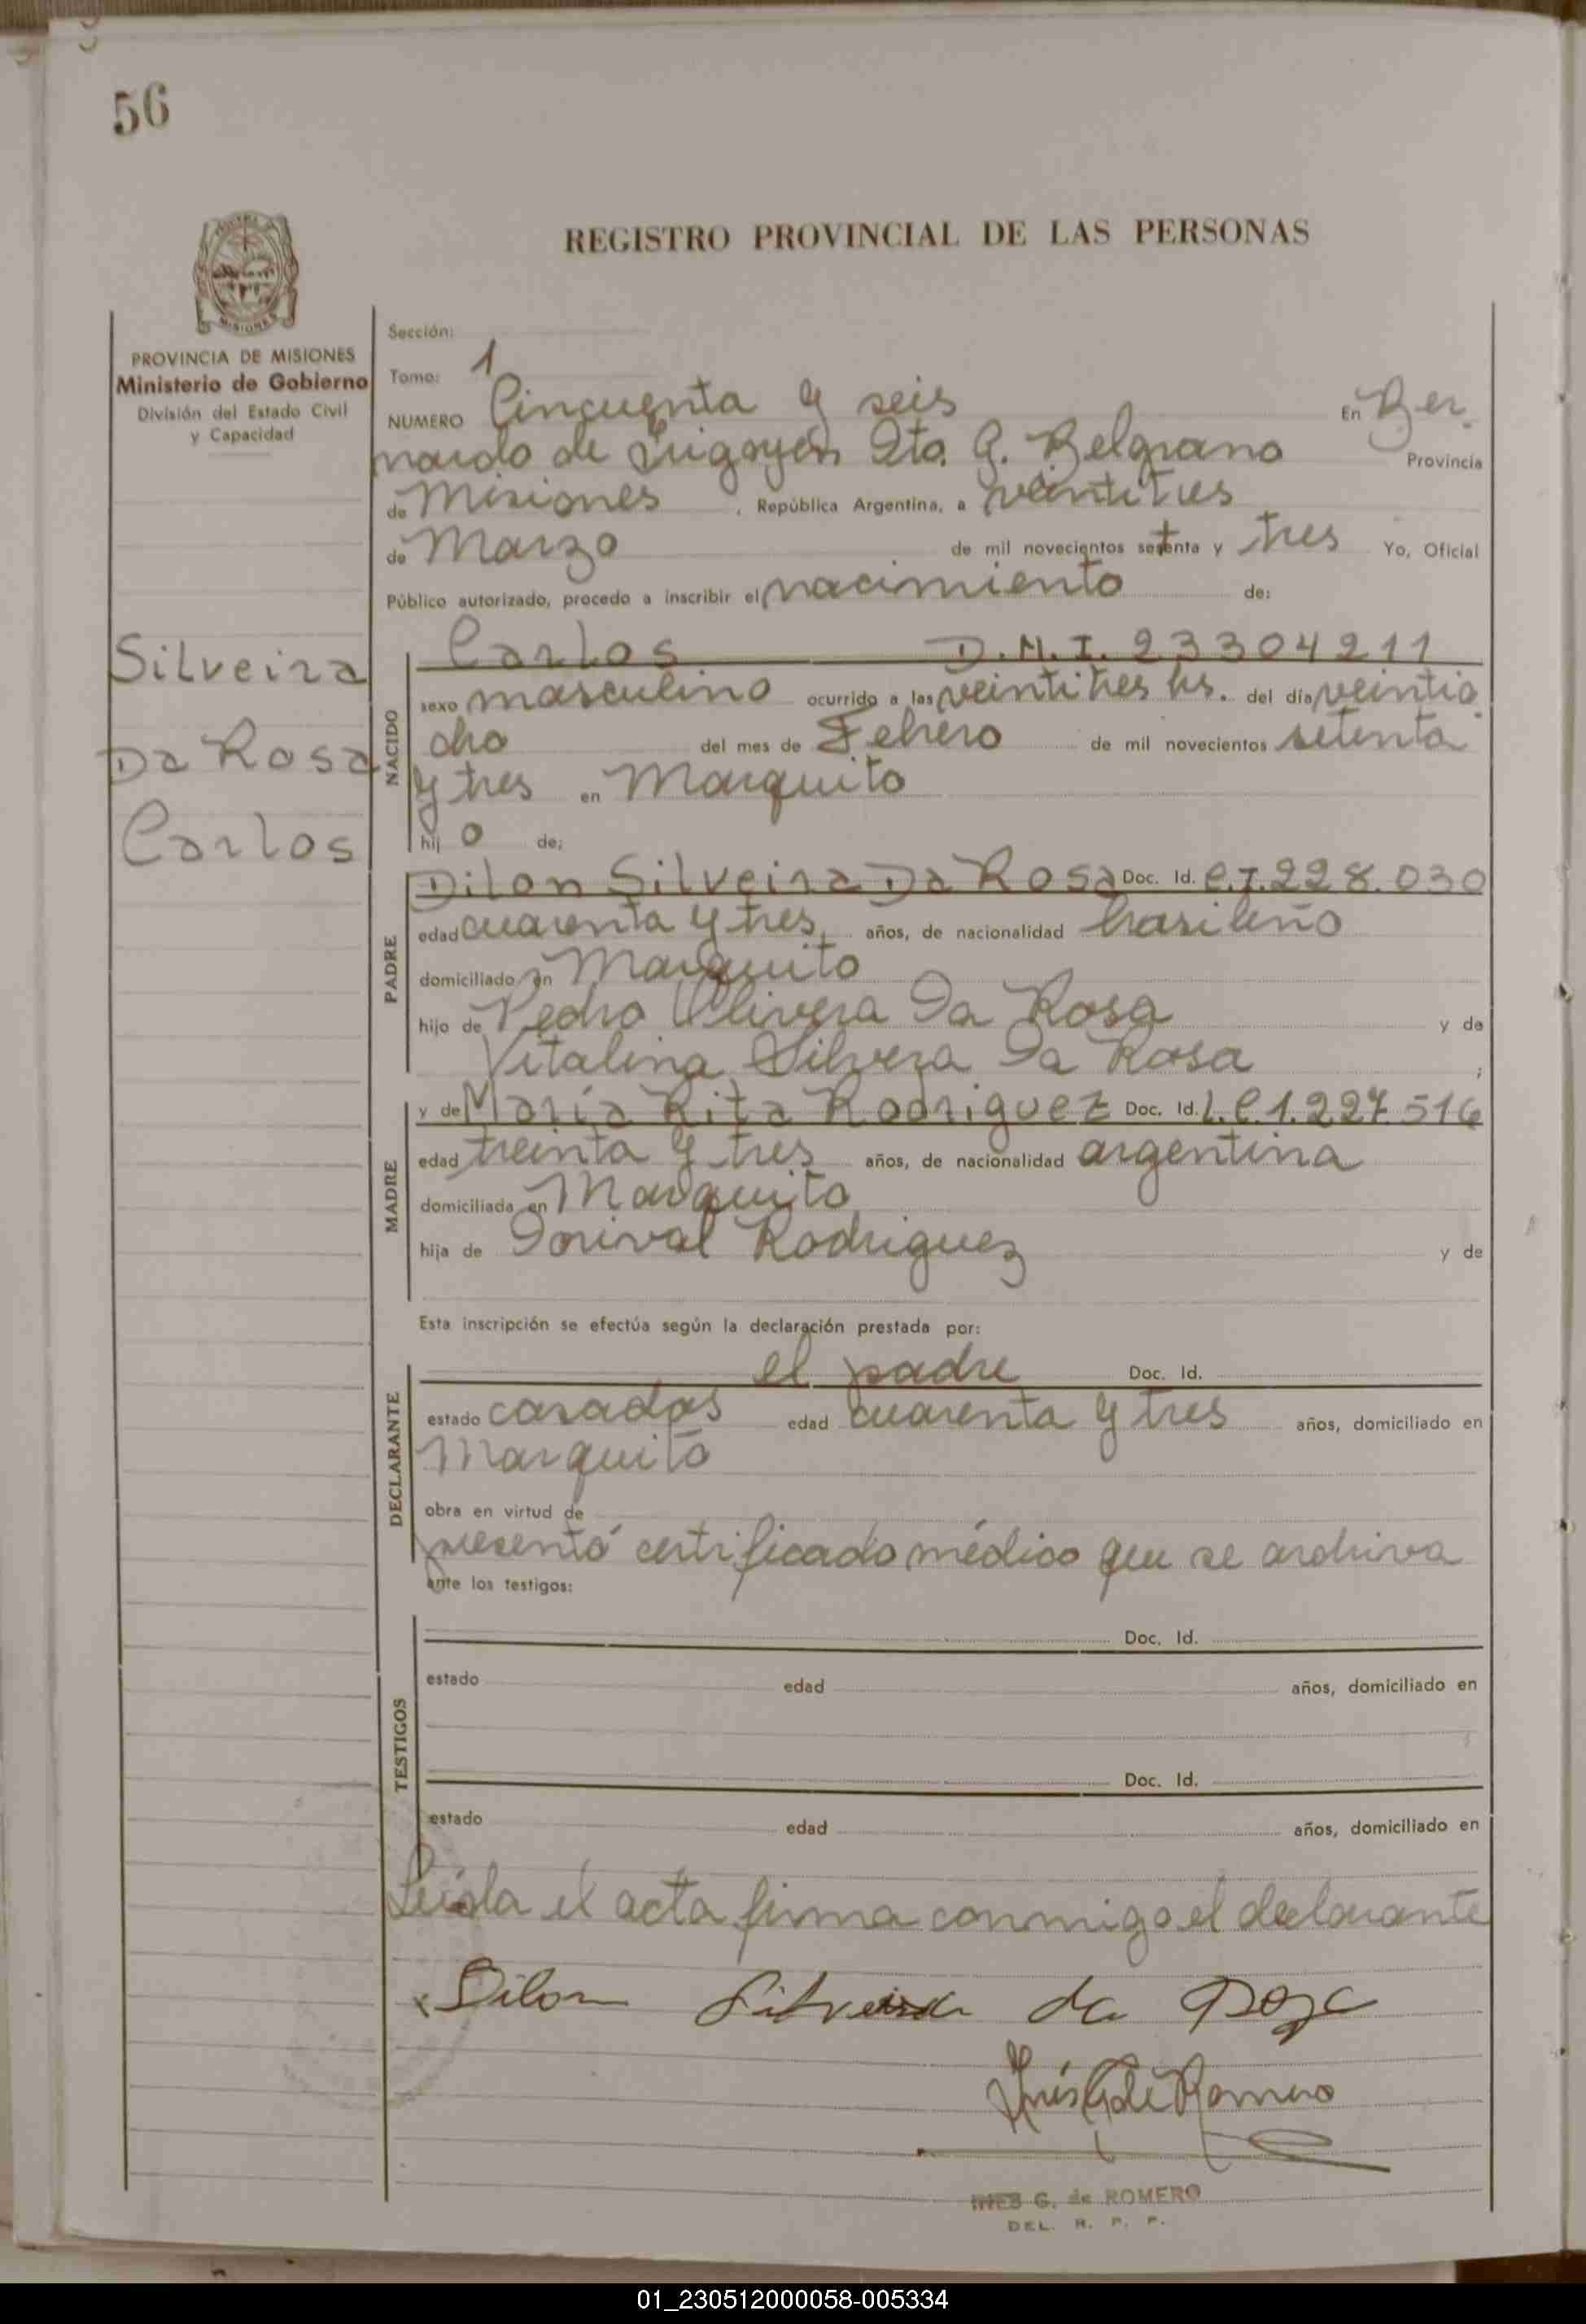 56
REGISTRO PROVINCIAL DE LAS PERSONAS
MISIONES
PROVINCIA DE MISIONES
Ministerio de Gobierno
División del Estado Civil
y Capacidad
Sección:
Tomo: 1
NUMERO Cincuenta y seis En Ber
nardo de Irigoyen Dto. G. Belgrano Provincia
de Misiones, República Argentina, a veintitres
de Marzo de mil novecientos setenta y tres Yo, Oficial
Público autorizado, procedo a inscribir el nacimiento de:
Silveira
Da Rosa
Carlos
NACIDO
Carlos D.N.I. 23304211
sexo masculino ocurrido a las veintitres hs. del día veintio
cho del mes de Febrero de mil novecientos setenta
y tres en Marquito
hijo de:
PADRE
Dilon Silveira Da Rosa Doc. Id. C.I. 228.030
edad cuarenta y tres años, de nacionalidad brasileño
domiciliado en Marquito
hijo de Pedro Olivera Da Rosa y de
Vitalina Silvera Da Rosa ;
MADRE
y de María Rita Rodriguez Doc. Id. L.C 1.227.516
edad treinta y tres años, de nacionalidad argentina
domiciliada en Marquito
hija de Dorival Rodriguez y de
Esta inscripción se efectúa según la declaración prestada por:
DECLARANTE
el padre Doc. Id.
estado casados edad cuarenta y tres años, domiciliado en
Marquito
obra en virtud de
presentó certificado médico que se archiva
ante los testigos:
TESTIGOS
Doc. Id.
estado edad años, domiciliado en
Doc. Id.
estado edad años, domiciliado en
Leída el acta firma conmigo el declarante
Dilon Silveira da Roza
Inés G de Romero
INES G. de ROMERO
DEL. R. P. P.
01_230512000058-005334